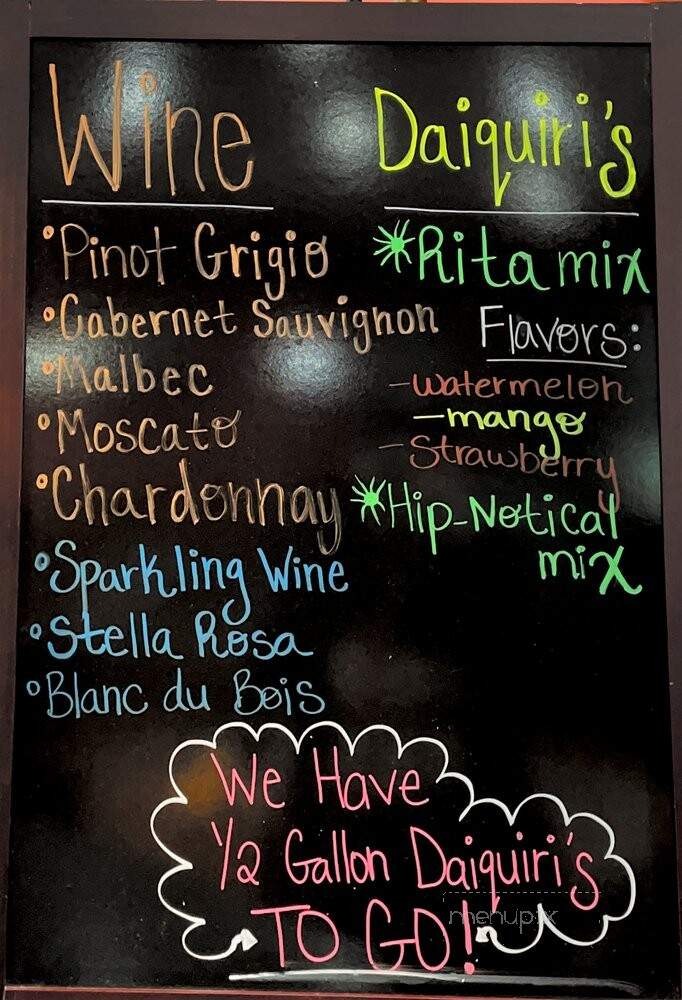 Wine
•Pinot Grigio
•Cabernet Sauvignon
•Malbec
•Moscato
•Chardonnay
•Sparkling Wine
•Stella Rosa
•Blanc du Bois
Daiquiri's
Rita mix
Flavors:
-watermelon
-mango
-Strawberry
Hip-Notical
mix
We Have
1/2 Gallon Daiquiri's
TO GO!
menupix